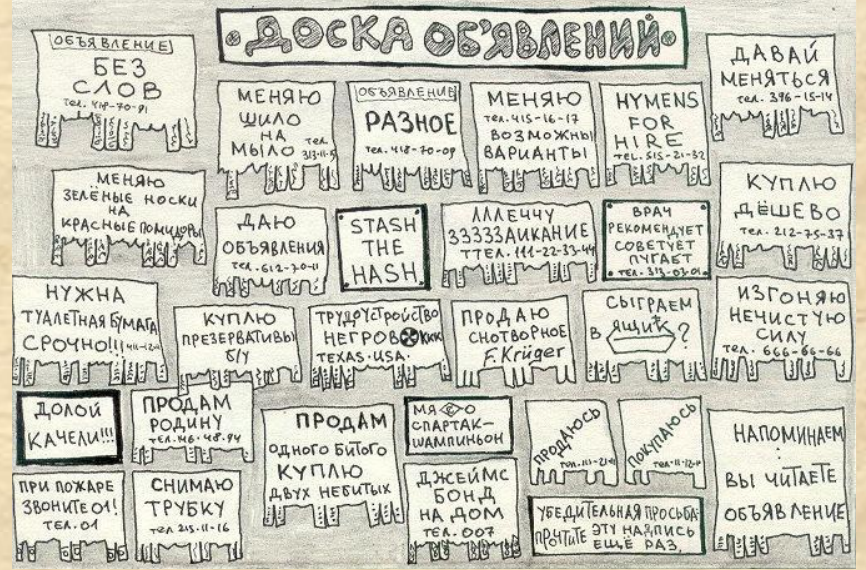 ДОСКА ОБ'ЯВЛЕНИЙ
ОБЪЯВЛЕНИЕ
БЕЗ
СЛОВ
тел. 419-70-91
МЕНЯЮ
ШИЛО
НА
МЫЛО
тел.
ОБЪЯВЛЕНИЕ
РАЗНОЕ
тел. 418-70-09
МЕНЯЮ
тел. 415-16-17
ВОЗМОЖНЫ
ВАРИАНТЫ
HYMENS
FOR
HIRE
TEL. 515-21-32
ДАВАЙ
МЕНЯТЬСЯ
тел. 396-15-14
МЕНЯЮ
ЗЕЛЁНЫЕ НОСКИ
НА
КРАСНЫЕ ПОМИДОРЫ
ДАЮ
ОБЪЯВЛЕНИЯ
тел. 612-70-11
STASH
THE
HASH
ЛЛЛЕЧЧУ
ЗЗЗЗЗАИКАНИЕ
ТТЕЛ. 111-22-33-44
ВРАЧ
РЕКОМЕНДУЕТ
СОВЕТУЕТ
ПУГАЕТ
ТЕЛ. 313-03-01
КУПЛЮ
ДЁШЕВО
тел. 212-75-37
НУЖНА
ТУАЛЕТНАЯ БУМАГА
СРОЧНО!!!
КУПЛЮ
ПРЕЗЕРВАТИВЫ
Б/У
ТРУДОУСТРОЙСТВО
НЕГРОВ ККК
TEXAS. USA.
ПРОДАЮ
СНОТВОРНОЕ
F. Krüger
СЫГРАЕМ
В ЯЩИК?
ИЗГОНЯЮ
НЕЧИСТУЮ
СИЛУ
тел. 666-66-66
ДОЛОЙ
КАЧЕЛИ!!!
ПРОДАМ
РОДИНУ
ТЕЛ. 146-48-94
ПРОДАМ
ОДНОГО БИТОГО
КУПЛЮ
ДВУХ НЕБИТЫХ
СПАРТАК-
ШАМПИНЬОН
ПРОДАЮСЬ
ПОКУПАЮСЬ
НАПОМИНАЕМ
:
ВЫ ЧИТАЕТЕ
ОБЪЯВЛЕНИЕ
ПРИ ПОЖАРЕ
ЗВОНИТЕ 01!
ТЕЛ. 01
СНИМАЮ
ТРУБКУ
тел 215-11-16
ДЖЕЙМС
БОНД
НА ДОМ
ТЕЛ. 007
УБЕДИТЕЛЬНАЯ ПРОСЬБА:
ПРОЧТИТЕ ЭТУ НАДПИСЬ
ЕЩЁ РАЗ.